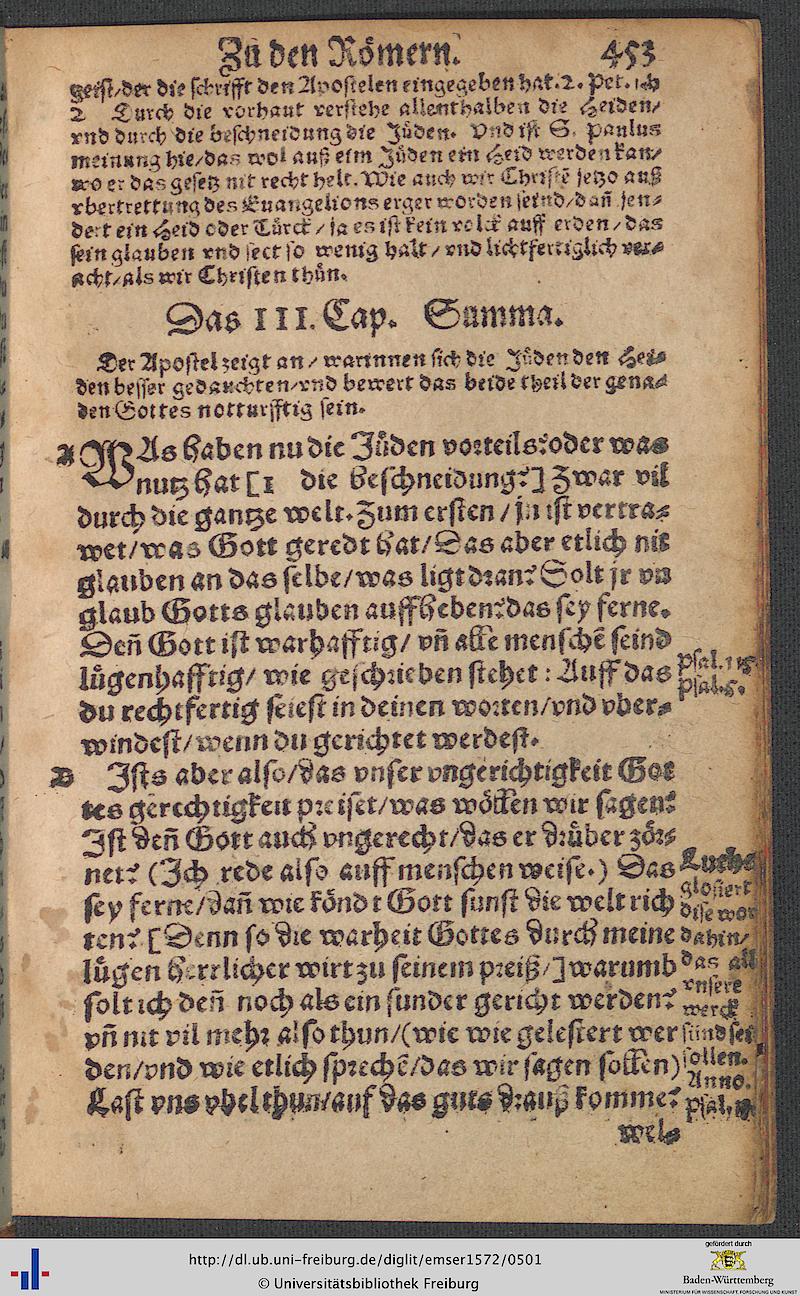 Zů den Römern. 453
geist/der die schrifft den Apostelen eingegeben hat. 2. Pet. 1.
2 Durch die vorhaut verstehe allenthalben die Heiden/
vnd durch die beschneidung die Jüden. Vnd ist S. Paulus
meinung hie/das wol auß eim Jüden ein Heid werden kan/
wo er das gesetz nit recht helt. Wie auch wir Christē jetzo auß
vbertrettung des Euangelions erger worden seind/dañ jen⸗
dert ein Heid oder Türck/ja es ist kein volck auff erden/das
sein glauben vnd sect so wenig halt/vnd lichtfertiglich ver⸗
acht/als wir Christen thůn.
Das III. Cap. Summa.
Der Apostel zeigt an/warinnen sich die Jüden den Hei⸗
den besser gedauchten/vnd bewert das beide theil der gena⸗
den Gottes notturfftig sein.
A WAs haben nu die Jüden vorteils? oder was
nutz hat [1 die beschneidung?] Zwar vil
durch die gantze welt. Zum ersten/jn ist vertra⸗
wet/was Gott geredt hat/Das aber etlich nit
glauben an das selbe/was ligt dran? Solt jr vn
glaub Gotts glauben auffheben? das sey ferne.
Deñ Gott ist warhafftig/vñ alle menschē seind
lügenhafftig/wie geschrieben stehet: Auff das
Psal. 115.
Psal. 5.
du rechtfertig seiest in deinen worten/vnd vber⸗
windest/wenn du gerichtet werdest.
B Ists aber also/das vnser vngerichtigkeit Got
tes gerechtigkeit preiset/was wöllen wir sagen?
Ist deñ Gott auch vngerecht/das er drüber zör⸗
net? (Ich rede also auff menschen weise.) Das
sey ferne/dañ wie köndt Gott sunst die welt rich
ten? [Denn so die warheit Gottes durch meine
lügen herrlicher wirt zu seinem preiß/] warumb
solt ich deñ noch als ein sunder gericht werden?
vñ nit vil mehr also thun/(wie wie gelestert wer
den/vnd wie etlich sprechē/das wir sagen sollen)
Last vns vbel thun/auf das guts drauß komme?
Luthe
glosiert
dise wor
dahin/
das all
vnsere
werck
sünd sei
sollen.
Anno.
Psal.
Wel⸗
http://dl.ub.uni-freiburg.de/diglit/emser1572/0501
© Universitätsbibliothek Freiburg
gefördert durch
Baden-Württemberg
MINISTERIUM FÜR WISSENSCHAFT, FORSCHUNG UND KUNST